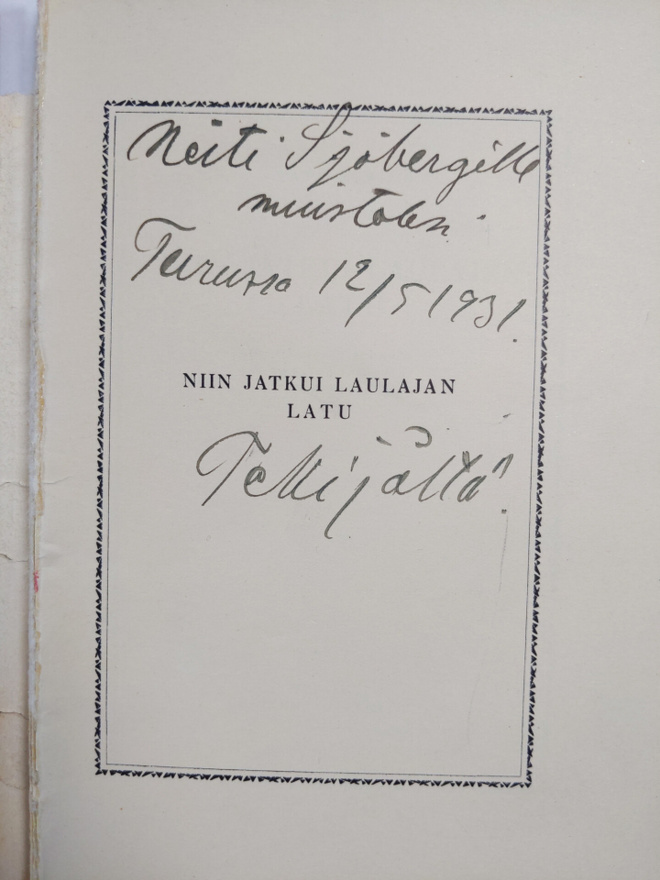 Neiti Sjöbergille
muistoksi
Turussa 12/5 1931.
NIIN JATKUI LAULAJAN
LATU
Tekijältä.